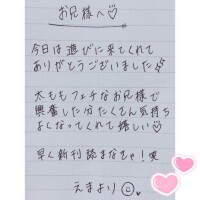 お兄様へ♡
今日は遊びに来てくれて
ありがとうございました
太ももフェチなお兄様で
興奮した分たくさん気持ち
よくなってくれて嬉しい♡
早く新刊読まなきゃ!笑
えまより